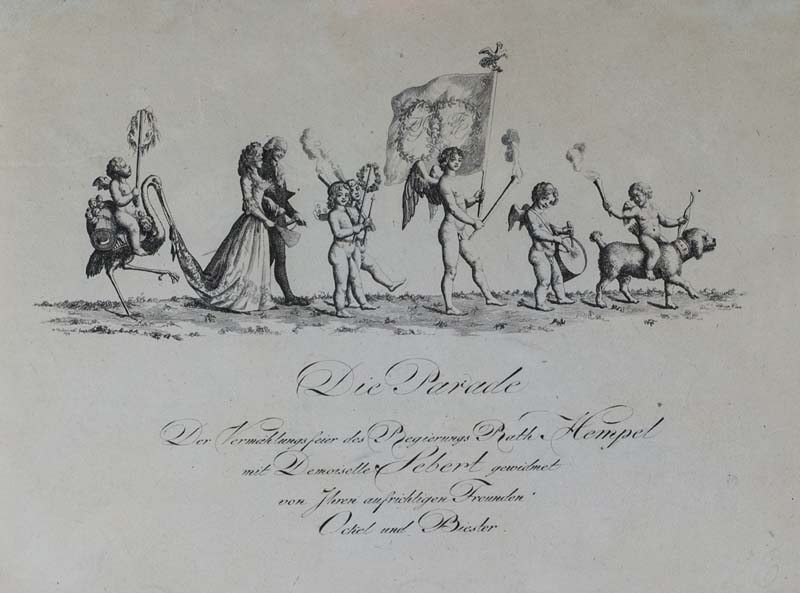 Die Parade
Der Vermählungsfeier des Regierungs Rath Hempel
mit Demoiselle Sebert gewidmet
von Ihren aufrichtigen Freunden
Ockel und Biester.